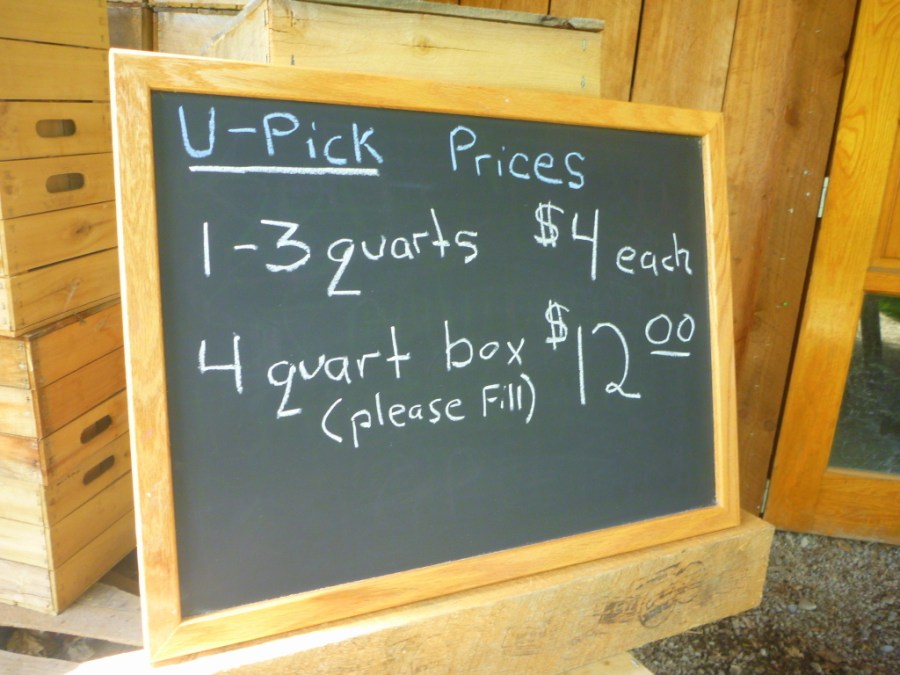 U-Pick Prices
1-3 quarts $4 each
4 quart box $12 00
(please Fill)